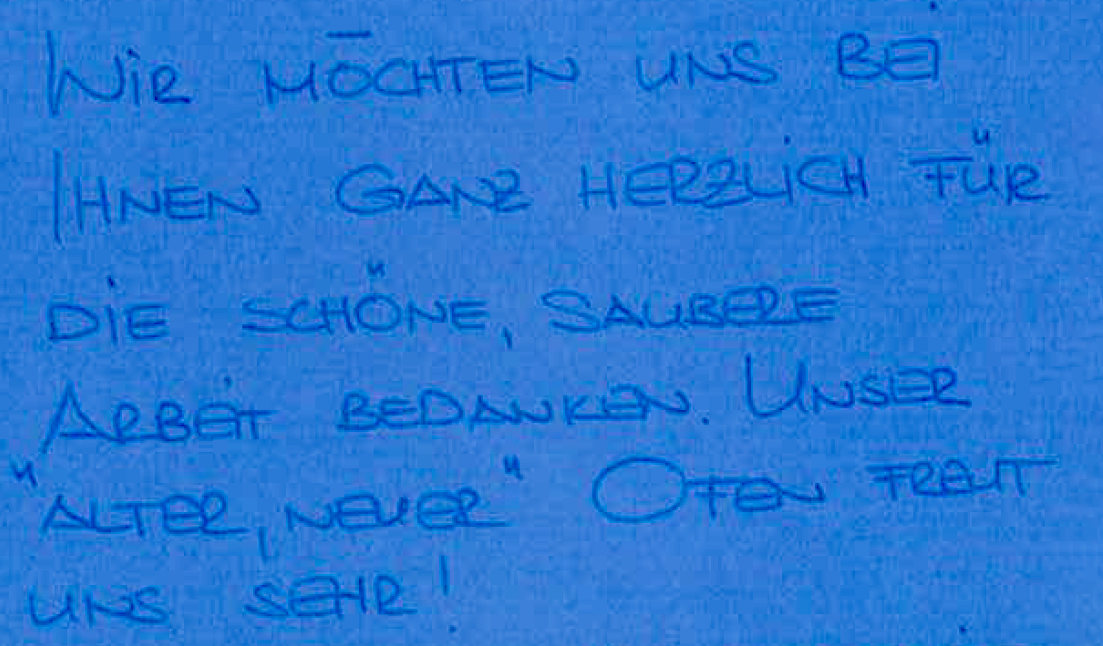 WiR MÖCHTEN UNS BEI
IHNEN GANZ HERZLiCH FÜR
DiE SCHÖNE, SAUBERE
ARBEiT BEDANKEN. UNSER
"ALTER, NEUER" OFEN FREUT
UNS SEHR!